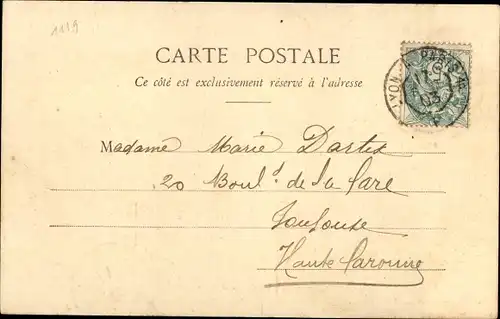 1119
CARTE POSTALE
Ce côté est exclusivement réservé à l'adresse
LYON A PARIS
03
Madame Marie Dartes
20 Boul.d de la Gare
Toulouse
Haute Garonne